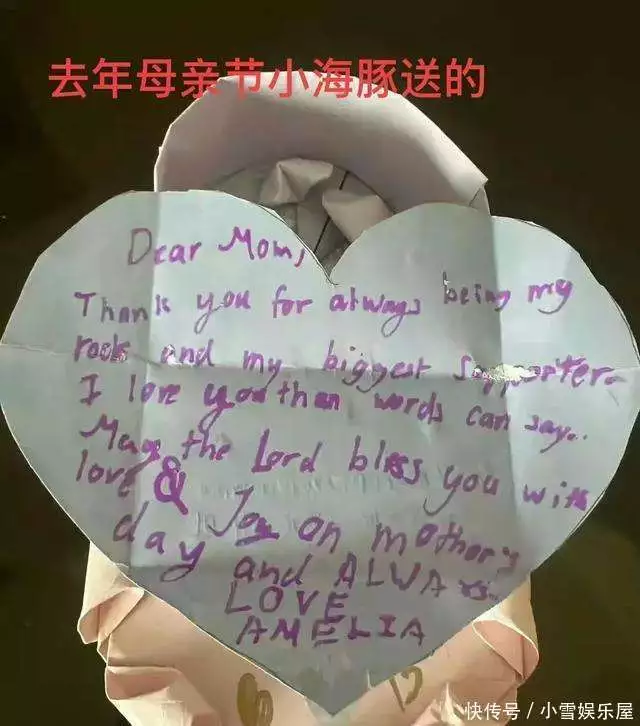 去年母亲节小海豚送的
Dear Mom,
Thank you for always being my
rock and my biggest supporter.
I love you than words can say..
May the Lord bless you with
love & Joy on mother's
day and ALWAYS.
LOVE
AMELIA
快传号/小雪娱乐屋